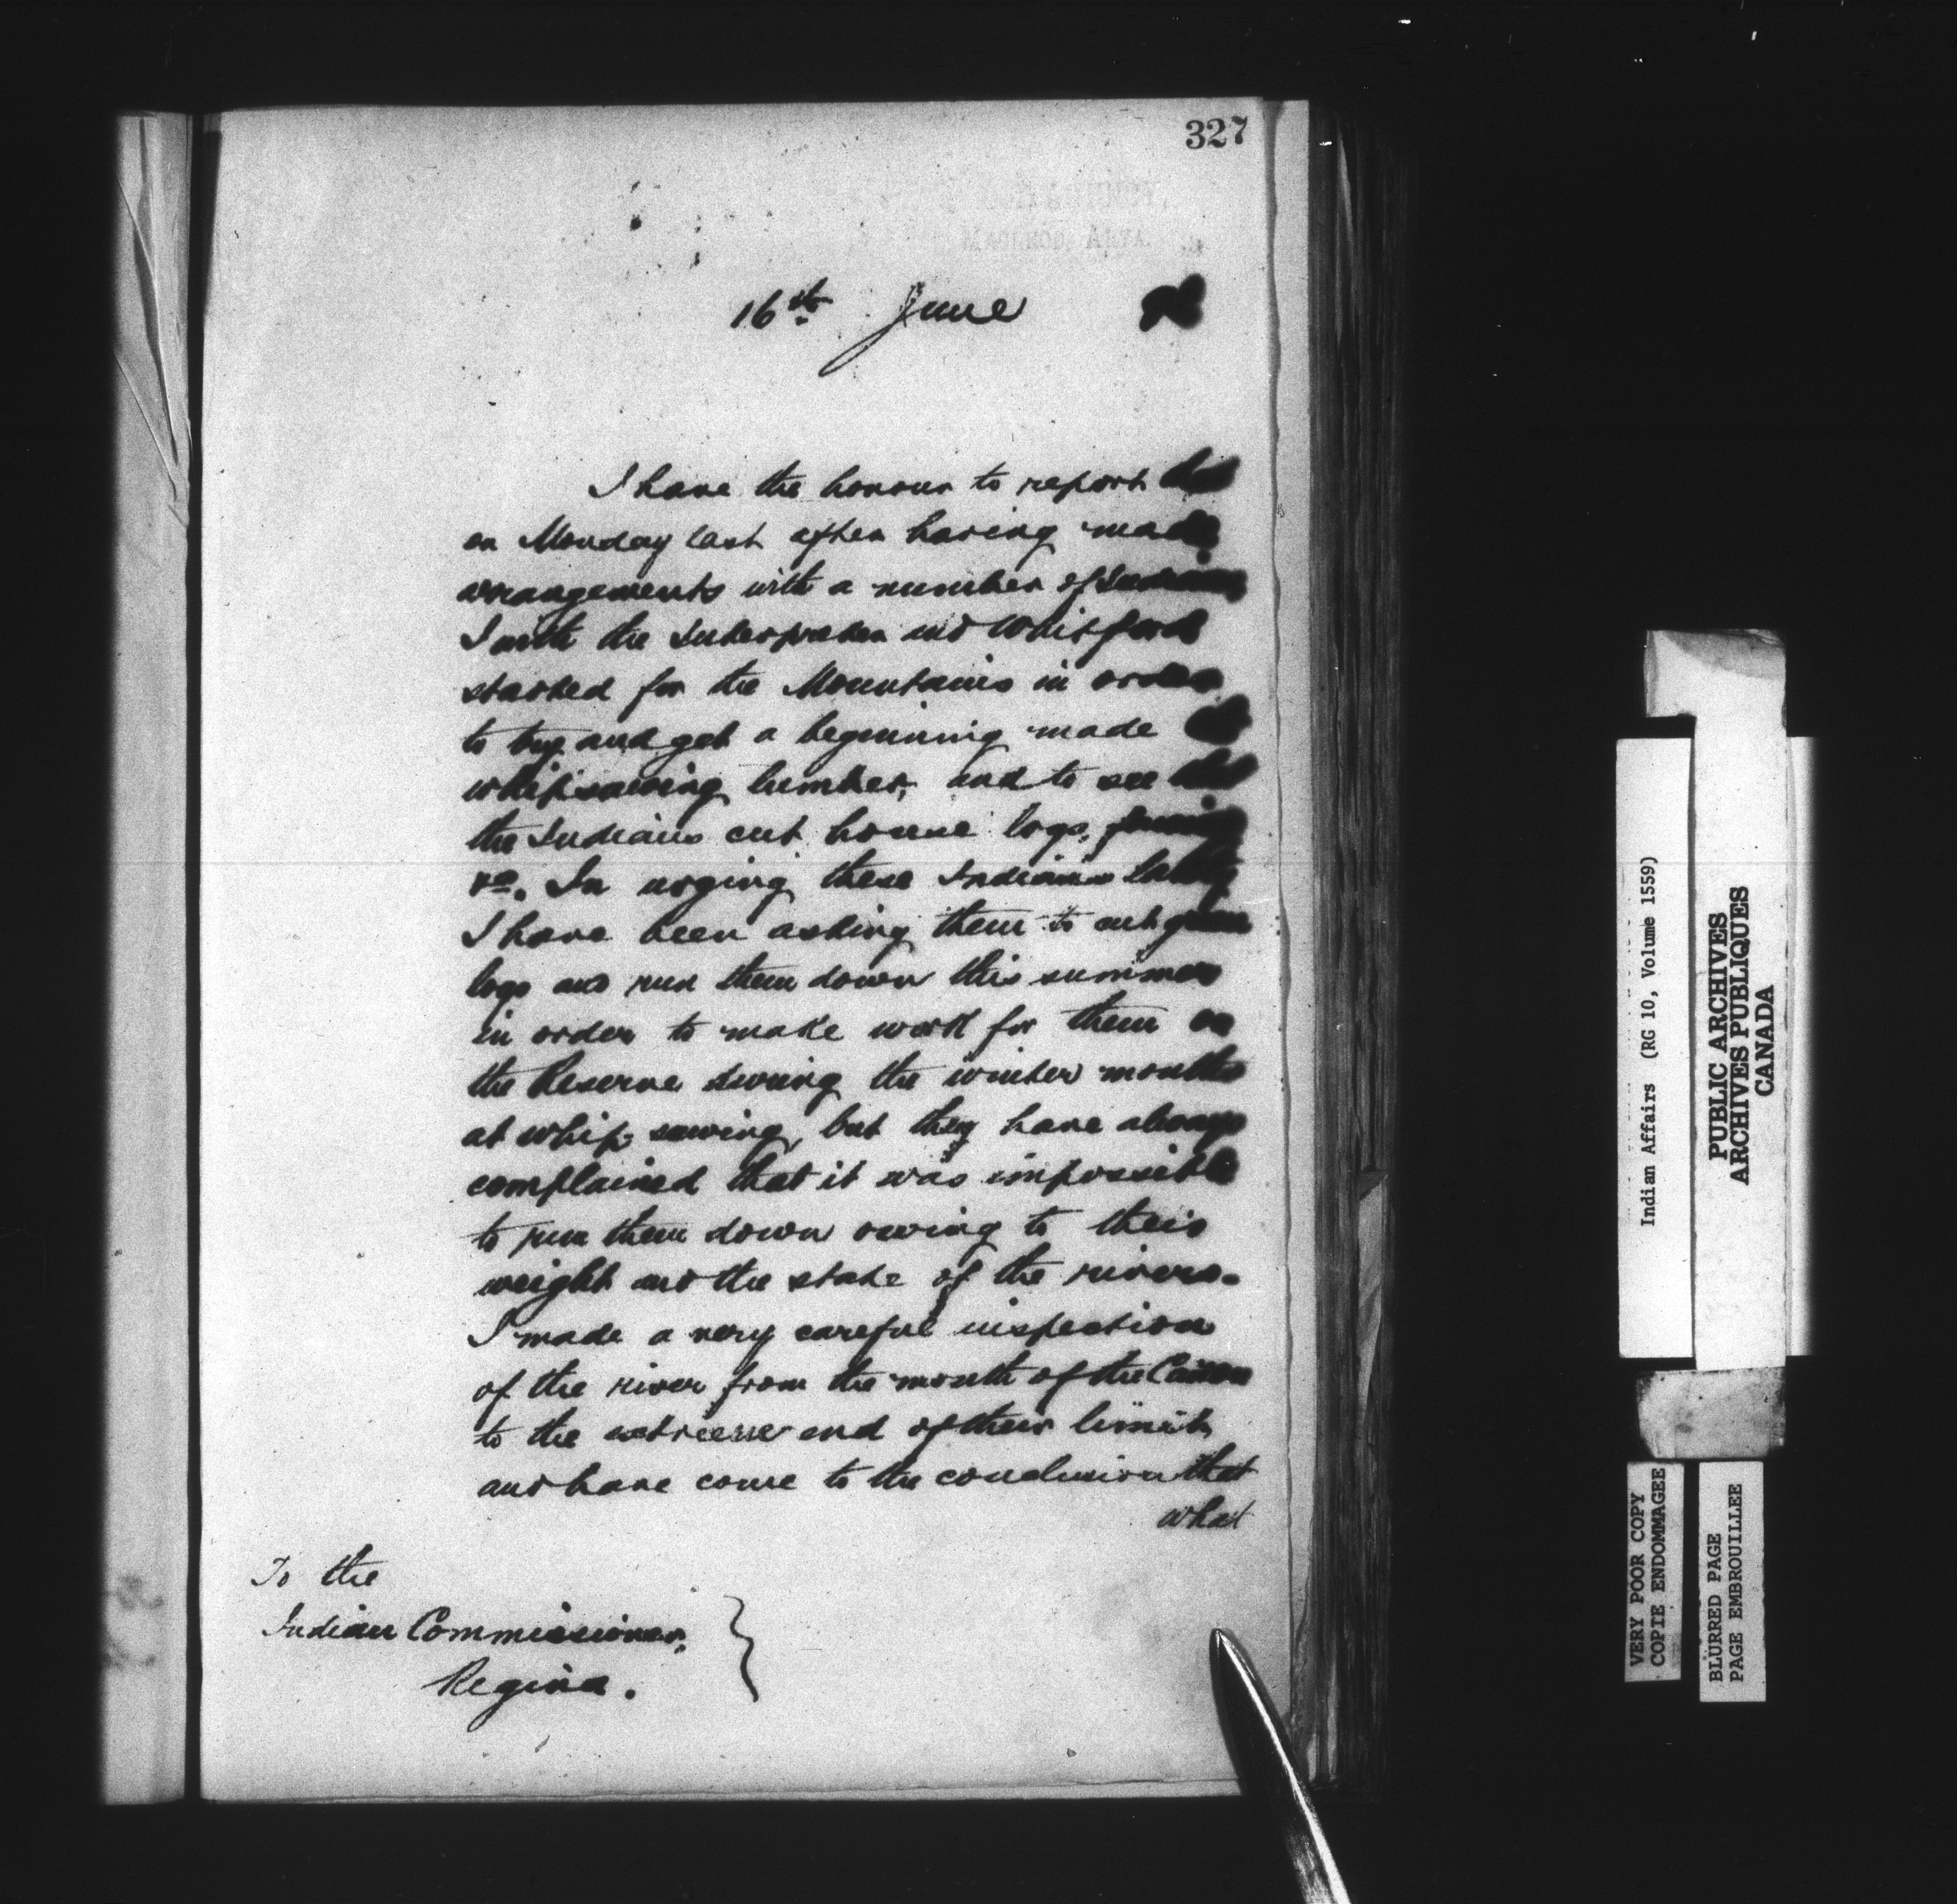 327
MACLEOD, ALTA.
16th June
I have the honour to report that
on Monday last after having made
arrangements with a number of Indians
I with the Interpreter and Whitford
started for the Mountains in order
to try and get a beginning made
whipsawing lumber, and to see that
the Indians cut house logs,
&c. In urging these Indians lately
I have been asking them to cut green
logs and run them down this summer
in order to make work for them on
the Reserve during the winter months
at whip sawing, but they have always
complained that it was impossible
to run them down owing to their
weight and the state of the rivers.
I made a very careful inspection
of the river from the mouth of the Cañon
to the extreme end of their limit,
and have come to the conclusion that
what
To the
Indian Commissioner,
Regina.
Indian Affairs (RG 10, Volume 1559)
PUBLIC ARCHIVES
ARCHIVES PUBLIQUES
CANADA
VERY POOR COPY
COPIE ENDOMMAGEE
BLURRED PAGE
PAGE EMBROUILLEE